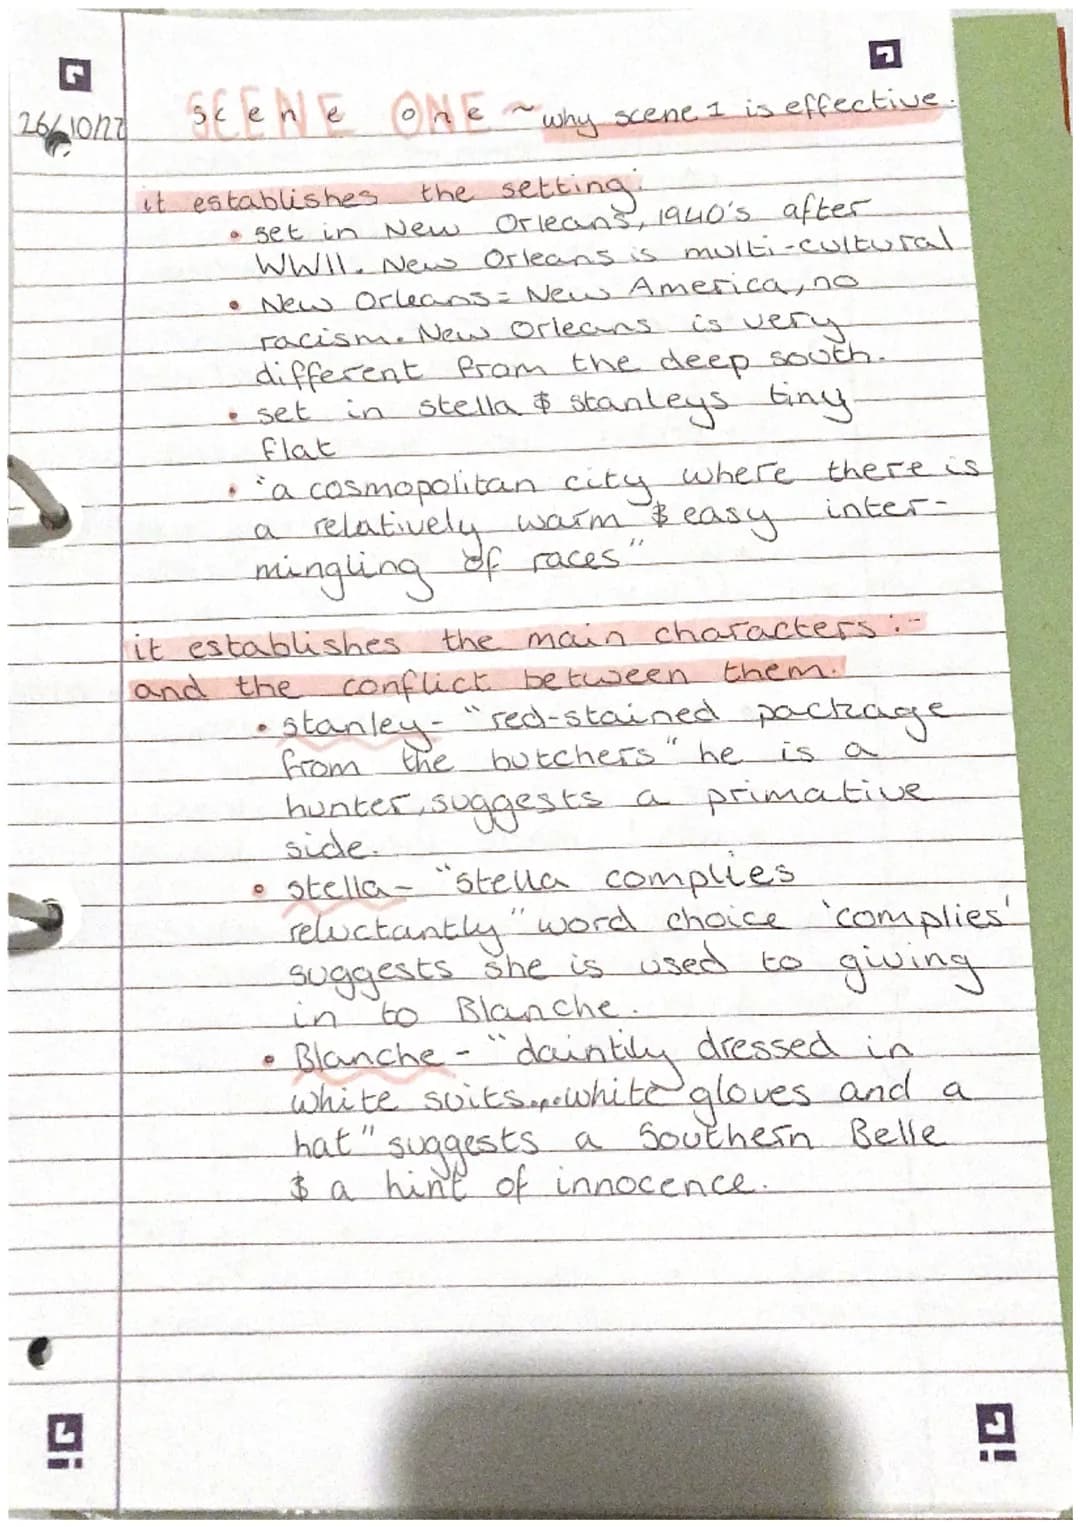 26/10/22
Scene One ~ why scene 1 is effective.
it establishes the setting:
• set in New Orleans, 1940's after
WWII. New Orleans is multi-cultural
• New Orleans = New America, no
racism. New Orleans is very
different from the deep south.
• set in stella & stanleys tiny
flat
• "a cosmopolitan city where there is
a relatively warm & easy inter-
mingling of races"
it establishes the main characters :-
and the conflict between them.
• stanley - "red-stained package
from the butchers" he is a
hunter, suggests a primative
side.
• stella - "stella complies
reluctantly" word choice 'complies'
suggests she is used to giving
in to Blanche.
• Blanche - "daintily dressed in
white suits....white gloves and a
hat" suggests a Southern Belle
& a hint of innocence.